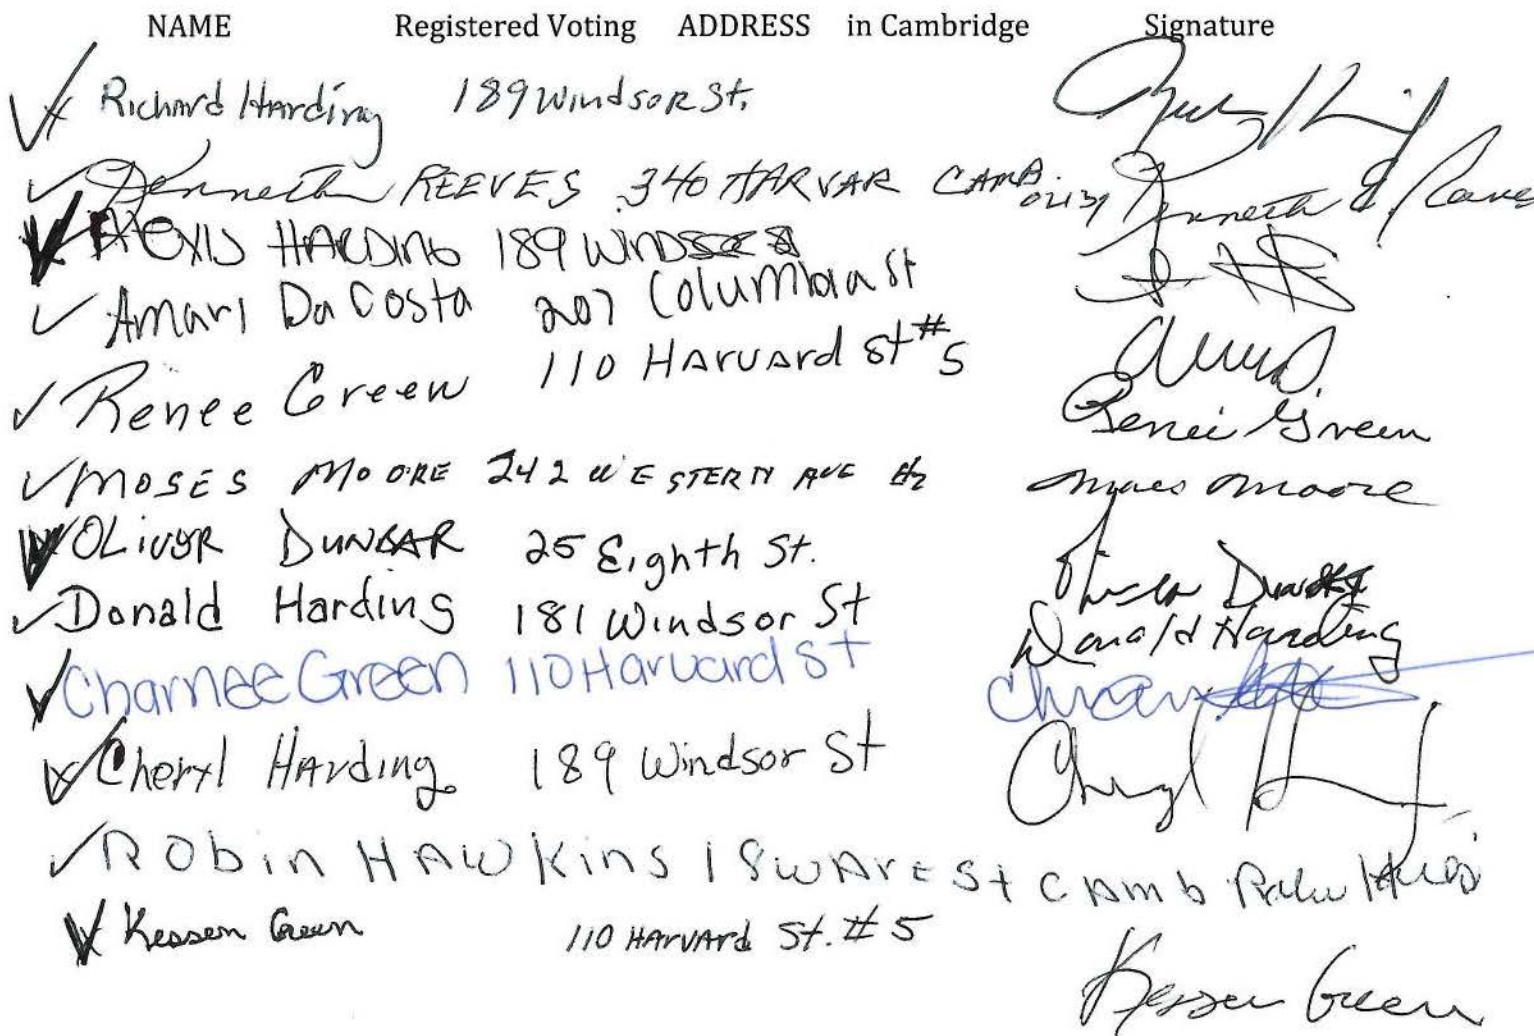 NAME Registered Voting ADDRESS in Cambridge Signature
Richard Harding 189 Windsor St.
Kenneth REEVES 340 HARVAR CAMB. 02139 Kenneth E. Reeves
Alexis HARDING 189 WINDSOR
Amari DaCosta 207 Columbia St
Renee Green 110 Harvard St #5 Renee Green
MOSES MOORE 242 WESTERN AVE #2 Moses Moore
OLIVER DUNBAR 25 Eighth St. Oliver Dunbar
Donald Harding 181 Windsor St Donald Harding
Charnee Green 110 Harvard St
Cheryl Harding 189 Windsor St Cheryl H
Robin HAWKins 18 WARE St CAMb
Kessen Green 110 HARVARD St. #5 Kessen Green